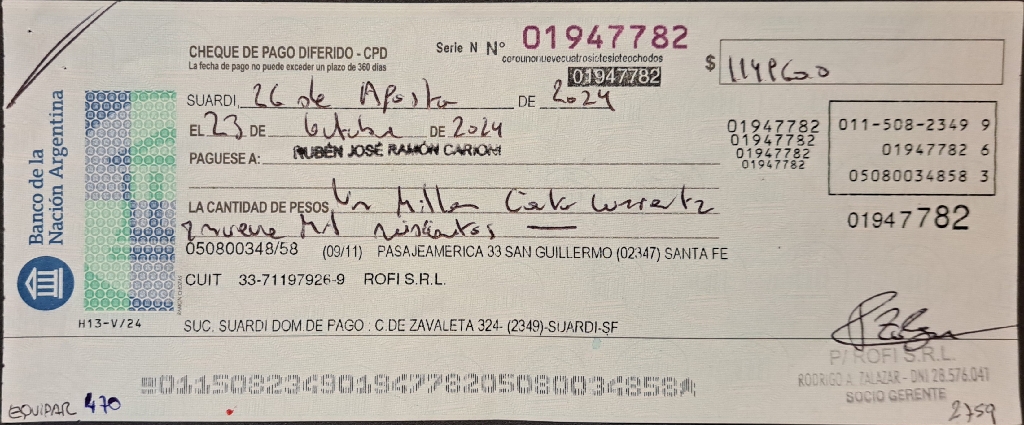 CHEQUE DE PAGO DIFERIDO - CPD
La fecha de pago no puede exceder un plazo de 360 días
Serie N Nº 01947782
cerounonuevecuatrosietesieteochodos
01947782
$ 1149600
SUARDI, 26 de Agosto DE 2024
EL 23 DE Octubre DE 2024
PAGUESE A: RUBÉN JOSÉ RAMÓN CARIONI
LA CANTIDAD DE PESOS Un Millon Ciento cuarenta
y nueve Mil seiscientos —
050800348/58 (09/11) PASAJEAMERICA 33 SAN GUILLERMO (02347) SANTA FE
CUIT 33-71197926-9 ROFI S.R.L.
SUC. SUARDI DOM.DE PAGO : C.DE ZAVALETA 324- (2349)-SUARDI-SF
01947782
01947782
01947782
01947782
011-508-2349 9
01947782 6
05080034858 3
01947782
Banco de la
Nación Argentina
H13-V/24
P/ ROFI S.R.L.
RODRIGO A. ZALAZAR - DNI 28.576.041
SOCIO GERENTE
2759
01150823490194778205080034858
EQUIPAR 470